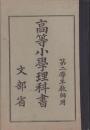 高等小學理科書
第二學年教師用
文部省